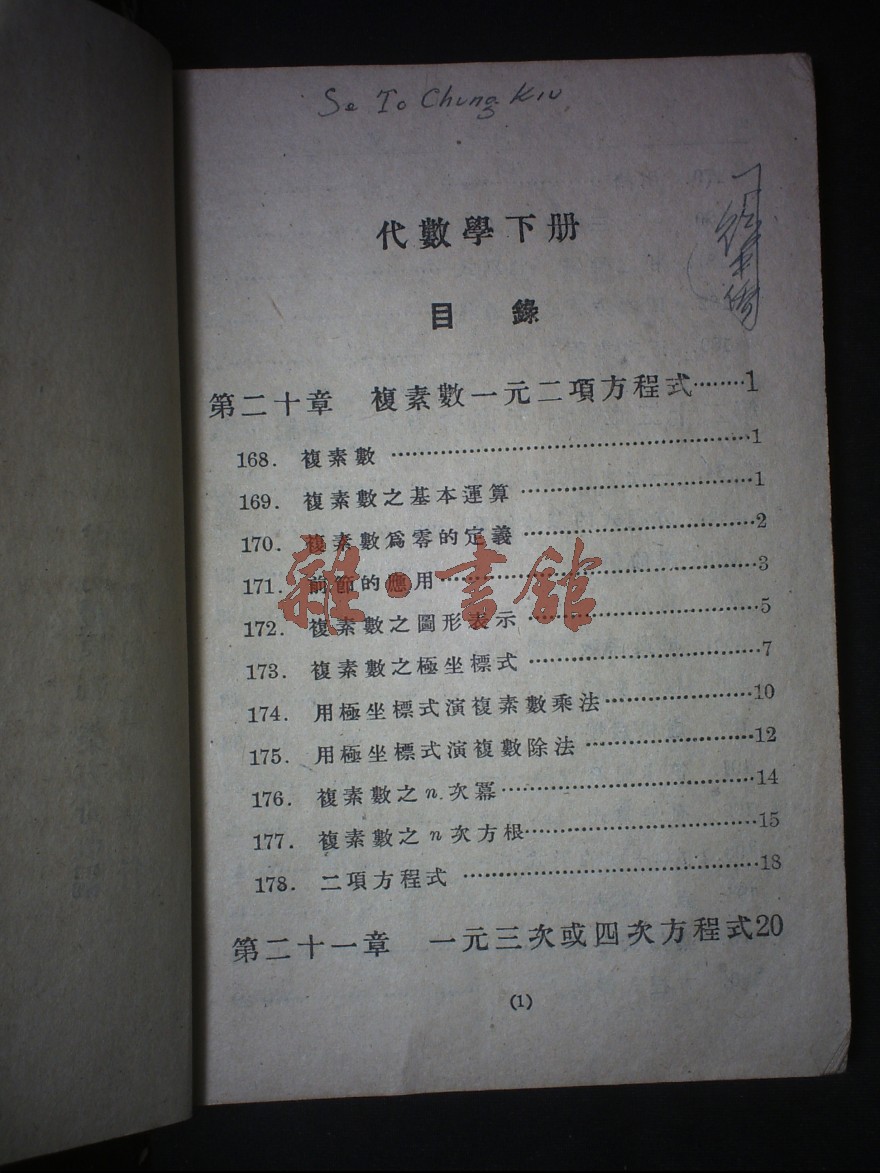 Se To Chung Kiu
代數學下册
目錄
第二十章 複素數一元二項方程式········1
168. 複素數 ········1
169. 複素數之基本運算 ········1
170. 複素數爲零的定義 ········2
171. 前節的應用 ········3
172. 複素數之圖形表示 ········5
173. 複素數之極坐標式 ········7
174. 用極坐標式演複素數乘法 ········10
175. 用極坐標式演複數除法 ········12
176. 複素數之n.次冪 ········14
177. 複素數之n次方根 ········15
178. 二項方程式 ········18
第二十一章 一元三次或四次方程式20
(1)
雜·書館